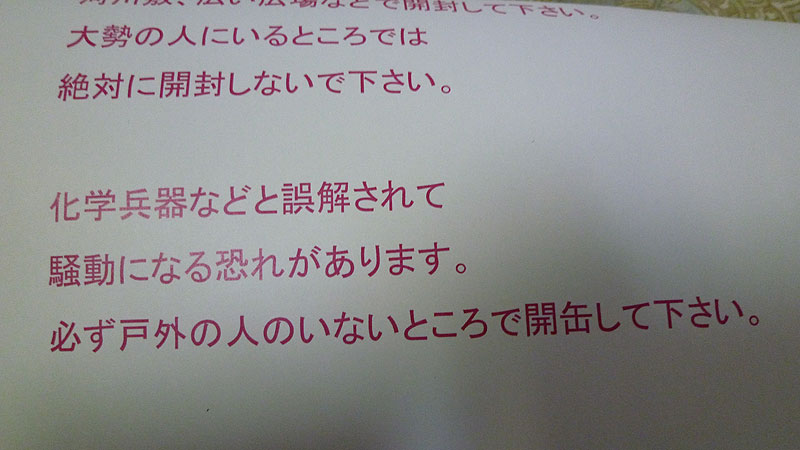 河川敷、広い広場などで開封して下さい。
大勢の人にいるところでは
絶対に開封しないで下さい。
化学兵器などと誤解されて
騒動になる恐れがあります。
必ず戸外の人のいないところで開缶して下さい。